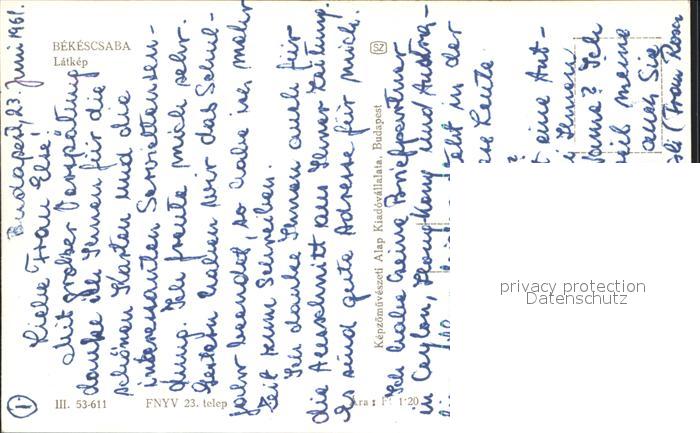 BÉKÉSCSABA
Látkép
Budapest, 23. Juni 1961.
Liebe Frau Else!
Mit grosser Verspätung
danke ich Ihnen für die
schönen Karten und die
interessanten Serviettensen-
dung. Ich freute mich sehr.
Gestern haben wir das Schul-
jahr beendet, so habe ich mehr
Zeit zum Schreiben.
Ich danke Ihnen auch für
die Ausschnitt aus Ihrer Zeitung.
Es sind gute Adresse für mich.
Képzőművészeti Alap Kiadóvállalata, Budapest
Ich habe Briefpartner
in Ceylon, Hong Kong und Austra-
in der
Leute
?
eine Ant-
Ihnen
? Ich
meine
auch Sie
(Frau Rosn
SZ
1
III. 53-611
FNYV 23. telep
Ára: F 1·20
privacy protection
Datenschutz